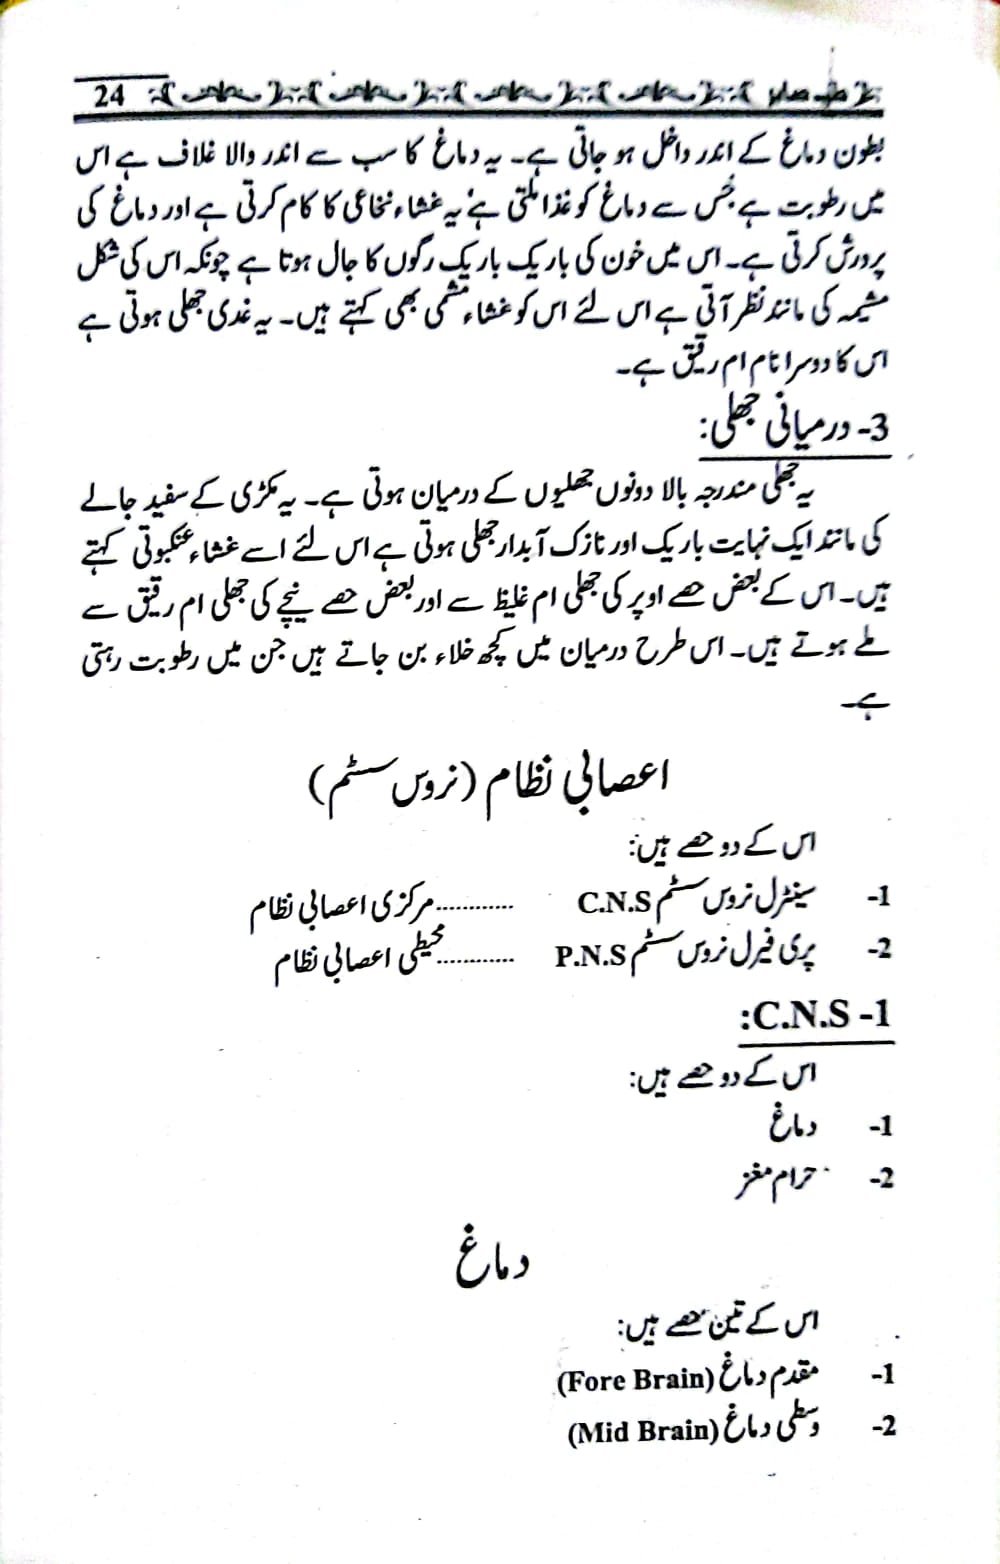 طب صابر 24
بطون دماغ کے اندر داخل ہو جاتی ہے۔ یہ دماغ کا سب سے اندر والا غلاف ہے اس
میں رطوبت ہے جس سے دماغ کو غذا ملتی ہے' یہ غشاء نخاعی کا کام کرتی ہے اور دماغ کی
پرورش کرتی ہے۔ اس میں خون کی باریک باریک رگوں کا جال ہوتا ہے چونکہ اس کی شکل
مشیمہ کی مانند نظر آتی ہے اس لئے اس کو غشاء مشمی بھی کہتے ہیں۔ یہ غدی جھلی ہوتی ہے
اس کا دوسرا نام ام رقیق ہے۔
3- درمیانی جھلی:
یہ جھلی مندرجہ بالا دونوں جھلیوں کے درمیان ہوتی ہے۔ یہ مکڑی کے سفید جالے
کی مانند ایک نہایت باریک اور نازک آبدار جھلی ہوتی ہے اس لئے اسے غشاء عنکبوتی کہتے
ہیں۔ اس کے بعض حصے اوپر کی جھلی ام غلیظ سے اور بعض حصے نیچے کی جھلی ام رقیق سے
ملے ہوتے ہیں۔ اس طرح درمیان میں کچھ خلاء بن جاتے ہیں جن میں رطوبت رہتی
ہے۔
اعصابی نظام (نروس سسٹم)
اس کے دو حصے ہیں:
1- سینٹرل نروس سسٹم C.N.S ............مرکزی اعصابی نظام
2- پری فیرل نروس سسٹم P.N.S ............محیطی اعصابی نظام
1- C.N.S:
اس کے دو حصے ہیں:
1- دماغ
2- حرام مغز
دماغ
اس کے تین حصے ہیں:
1- مقدم دماغ (Fore Brain)
2- وسطی دماغ (Mid Brain)